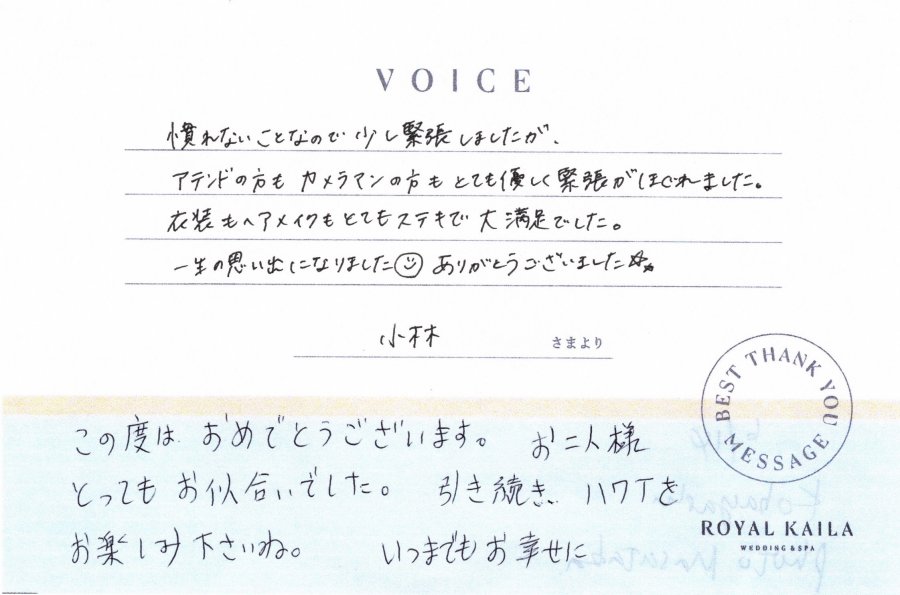 VOICE
慣れないことなので少し緊張しましたが、
アテンドの方も カメラマンの方も とても優しく緊張がほぐれました。
衣装もヘアメイクもとてもステキで大満足でした。
一生の思い出になりました☺ ありがとうございました☆☆
小林 さまより
BEST THANK YOU MESSAGE
この度は おめでとうございます。 お二人様
とっても お似合いでした。 引き続き、ハワイを
お楽しみ下さいね。 いつまでもお幸せに
ROYAL KAILA
WEDDING & SPA